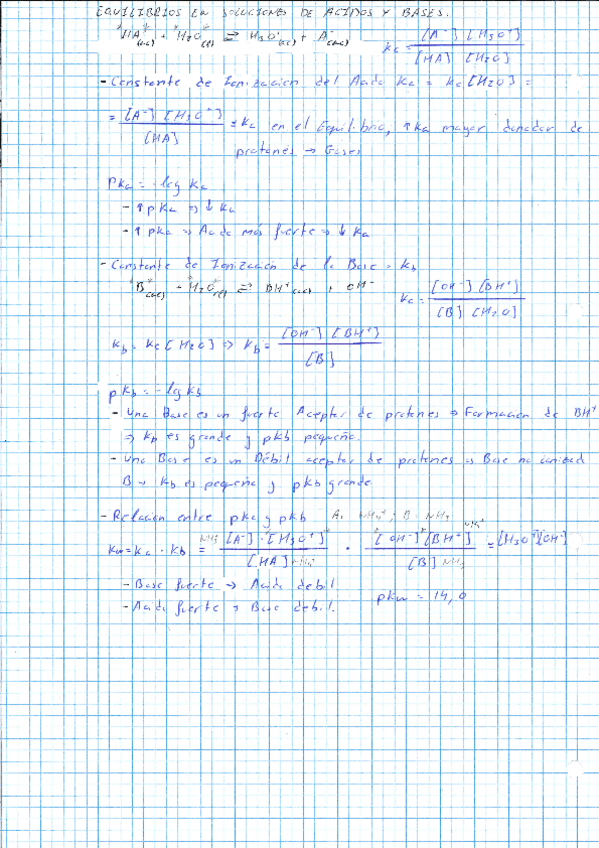 EQUILIBRIOS EN SOLUCIONES DE ACIDOS Y BASES.
*HA*(ac) + *H2O*(l) ⇌ H3O+(ac) + A-(ac) Kc = [A-] [H3O+] / [HA] [H2O]
- Constante de Ionización del Acido Ka = Kc [H2O] =
= [A-] [H3O+] / [HA] = Ka en el Equilibrio, ↑Ka mayor donador de
protones →
PKa = -log Ka
- ↑pKa ⇒ ↓Ka
- ↑pKa → Acido más fuerte → ↓Ka
- Constante de Ionización de la Base = Kb
*B*(ac) + *H2O*(l) ⇌ BH+(ac) + OH- Kc = [OH-] [BH+] / [B] [H2O]
Kb = Kc [H2O] ⇒ Kb = [OH-] [BH+] / [B]
pKb = -log Kb
- Una Base es un fuerte Aceptor de protones ⇒ Formación de BH+
⇒ Kb es grande y pKb pequeña.
- Una Base es un Débil aceptor de protones → Base no ionizad
B → Kb es pequeña y pKb grande
- Relación entre pKa y pKb A: NH4+; B: NH3
Kw = Ka · Kb = NH3 [A-] · [H3O+] / [HA] NH4+ · [OH-] [BH+] NH4+ / [B] NH3 = [H3O+][OH-]
- Base fuerte → Acido debil
pKw = 14,0
- Acido fuerte → Base debil.